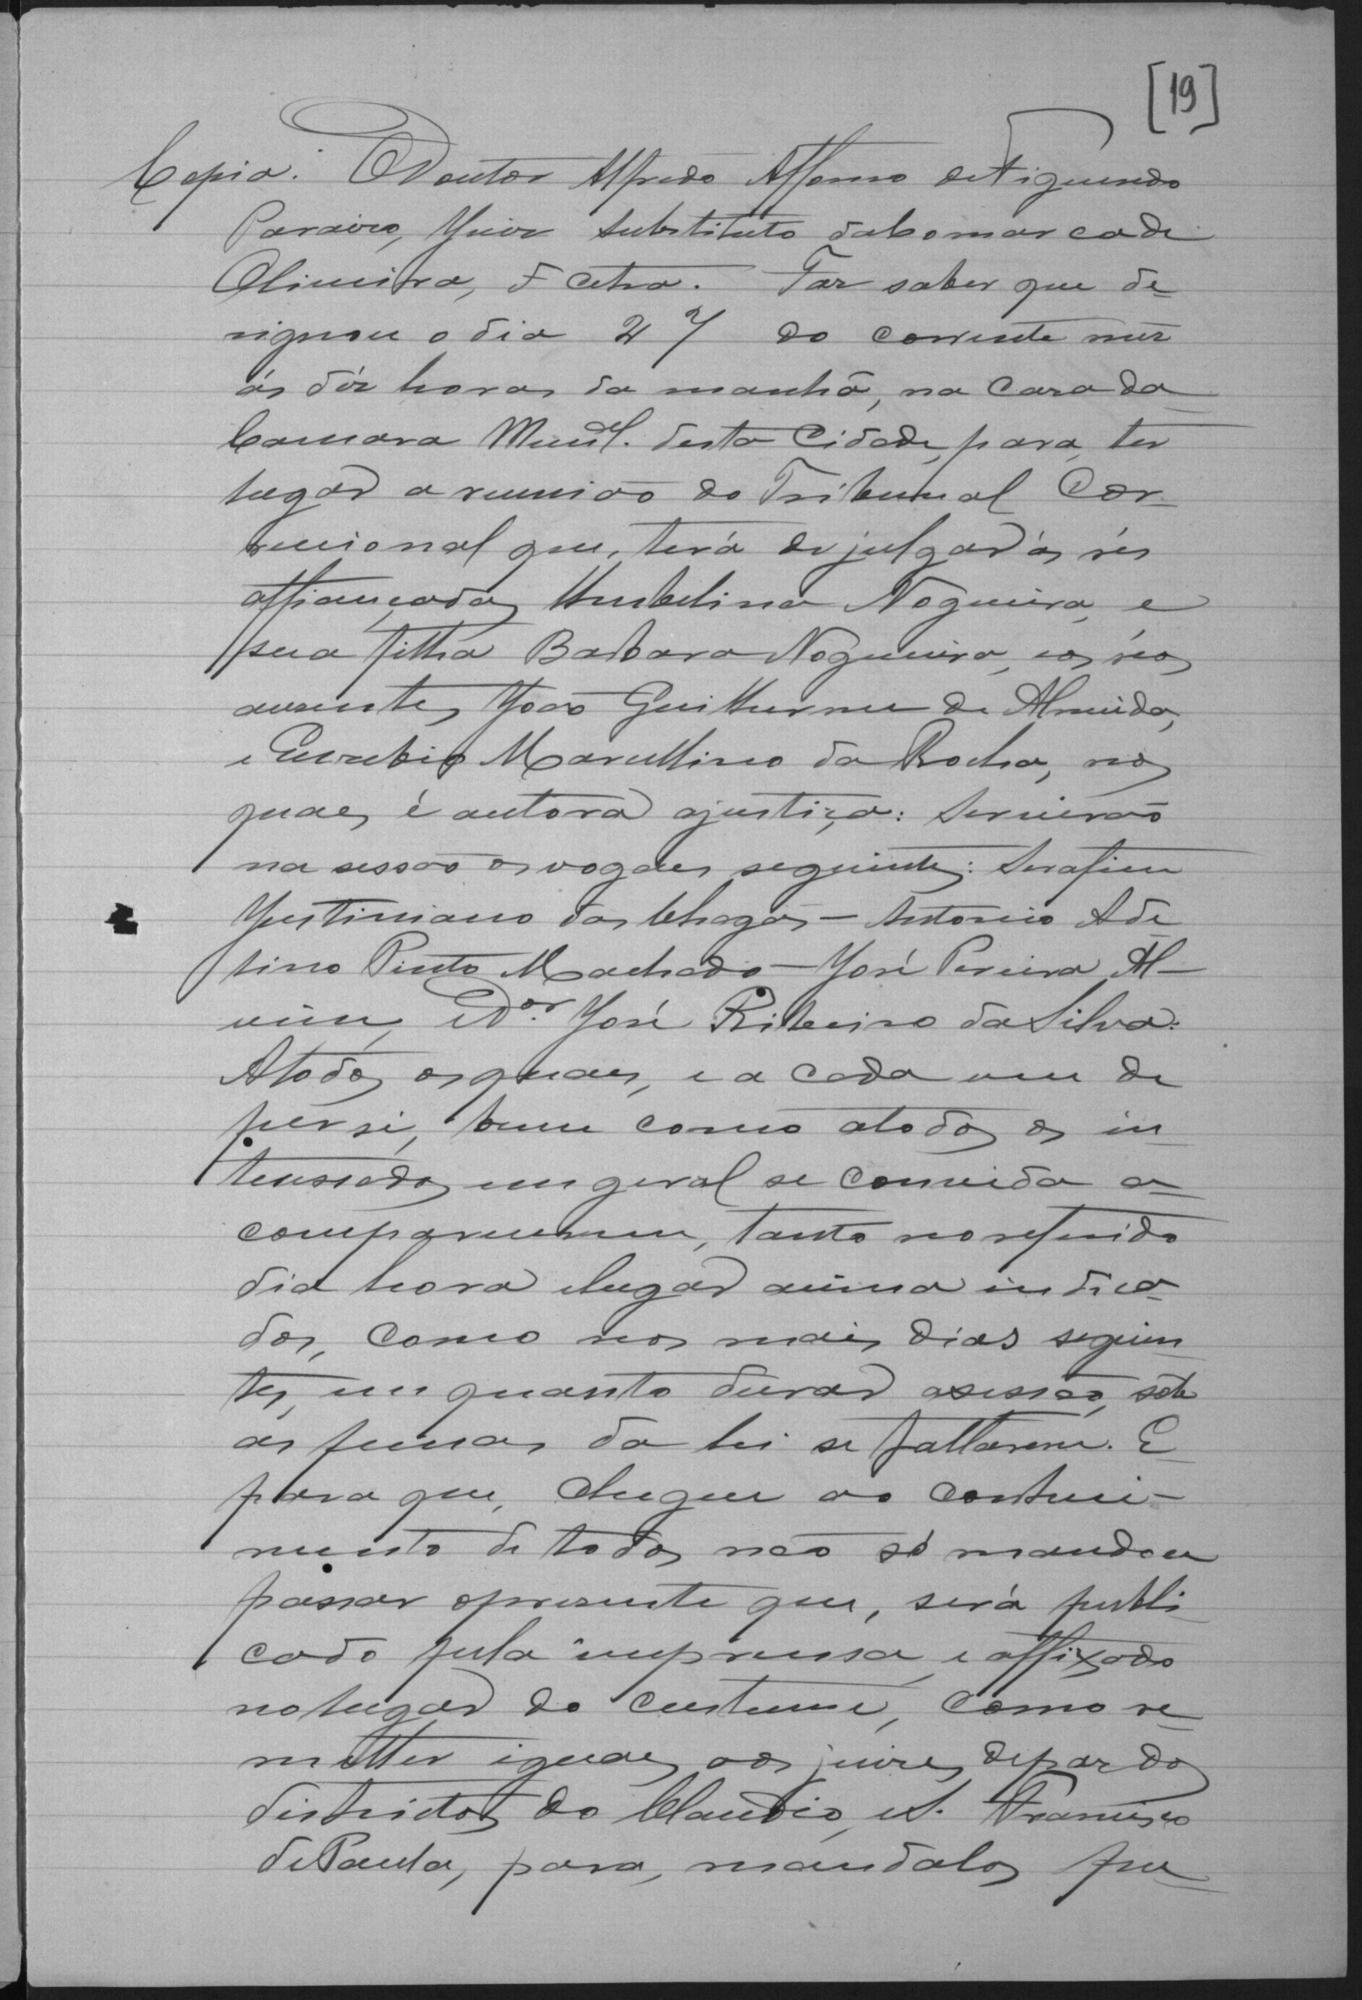 [19]
Copia. O Doutor Alfredo Affonso de Figueiredo
Paraiso, Juiz substituto da comarca de
Oliveira, & cetra. Faz saber que de-
signou o dia 27 do corrente mez
ás déz horas da manhã, na casa da
Camara Munal. desta Cidade, para ter
lugar a reunião do Tribunal Cor-
reccional que, terá de julgar ás rés
affiançadas Umbelina Nogueira, e
sua filha Barbara Nogueira, e os réos
ausentes João Guilherme de Almeida,
e Euzebio Marcellino da Rocha, nos
quaes é autora a justiça: Servirão
na sessão os vogaes seguintes: Serafim
Justiniano das Chagas — Antonio Ade-
lino Pinto Machado — José Pereira Al-
vim, e Dor. José Ribeiro da Silva.
A todos os quaes, e a cada um de
per si, bem como a todos os in-
teressados em geral se convida a
comparecerem, tanto no referido
dia hora e lugar acima indica-
dos, como nos mais dias seguin-
tes, em quanto durar a sessão, sob
as penas da lei se faltarem. E
para que, chegue ao conheci-
mento de todos não só mandou
passar o presente que, será publi-
cado pela imprensa, e affixado
no lugar do custume, como re-
metter iguaes aos juizes de paz dos
districtos do Claudio, e S. Francisco
de Paula, para, mandalos pu-